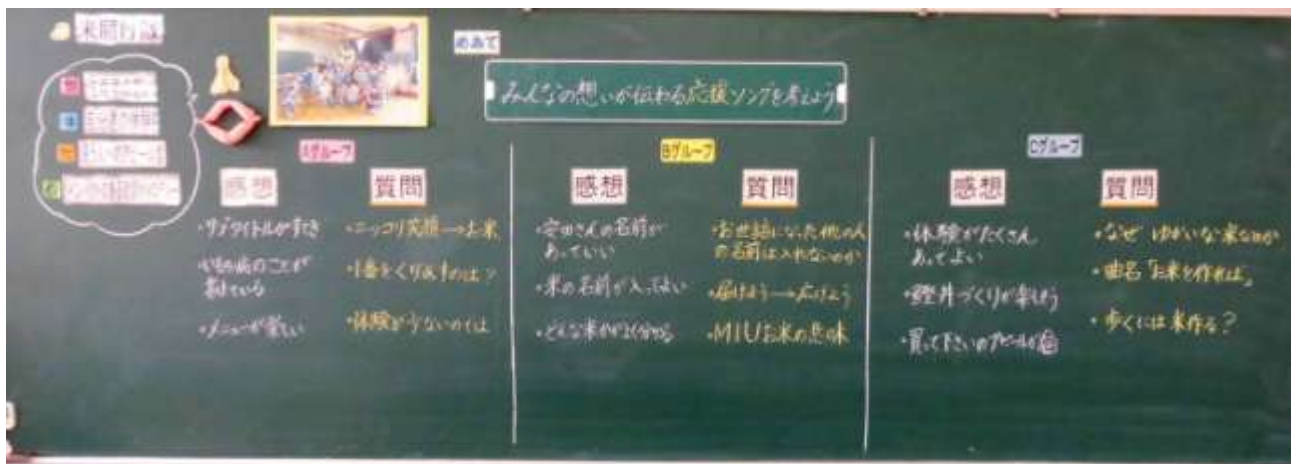 めあて
みんなの想いが伝わる応援ソングを考えよう
Aグループ
感想
・サブタイトルがすき
・いもち病のことが
書けている
・メニューが楽しい
質問
・ニッコリ笑顔→お米
・1番をくり返すのは？
・体験が少ないのでは
Bグループ
感想
・安田さんの名前が
あっていい
・米の名前が入ってよい
・どんな米かがよく分かる
質問
・お世話になった他の人
の名前は入れないのか
・届けよう→広げよう
・MIUお米の意味
Cグループ
感想
・体験がたくさん
あってよい
・鰹丼づくりが楽しそう
・買って下さいのアピールが
質問
・なぜ ゆかいな米なのか
・曲名「お米を作れば」
・歩くには米作る？